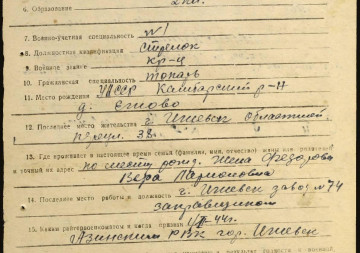 6. Образование
7. Военно-учетная специальность №1
8. Должностная квалификация Стрелок
9. Воинское звание кр-ц
10. Гражданская специальность токарь
11. Место рождения УАССР Камбарский р-н
д. Ежово
12. Последнее место жительства г. Ижевск Областной
переул. 38.
13. Где проживает в настоящее время семья (фамилия, имя, отчество) жены или родителей
и точный их адрес по месту рожд. Жена Федорова
Вера Ларионовна
14. Последнее место работы и должность г. Ижевск завод №74
заправщиком
15. Каким райвоенкоматом и когда призван 44г.
Азинским РВК гор. Ижевск